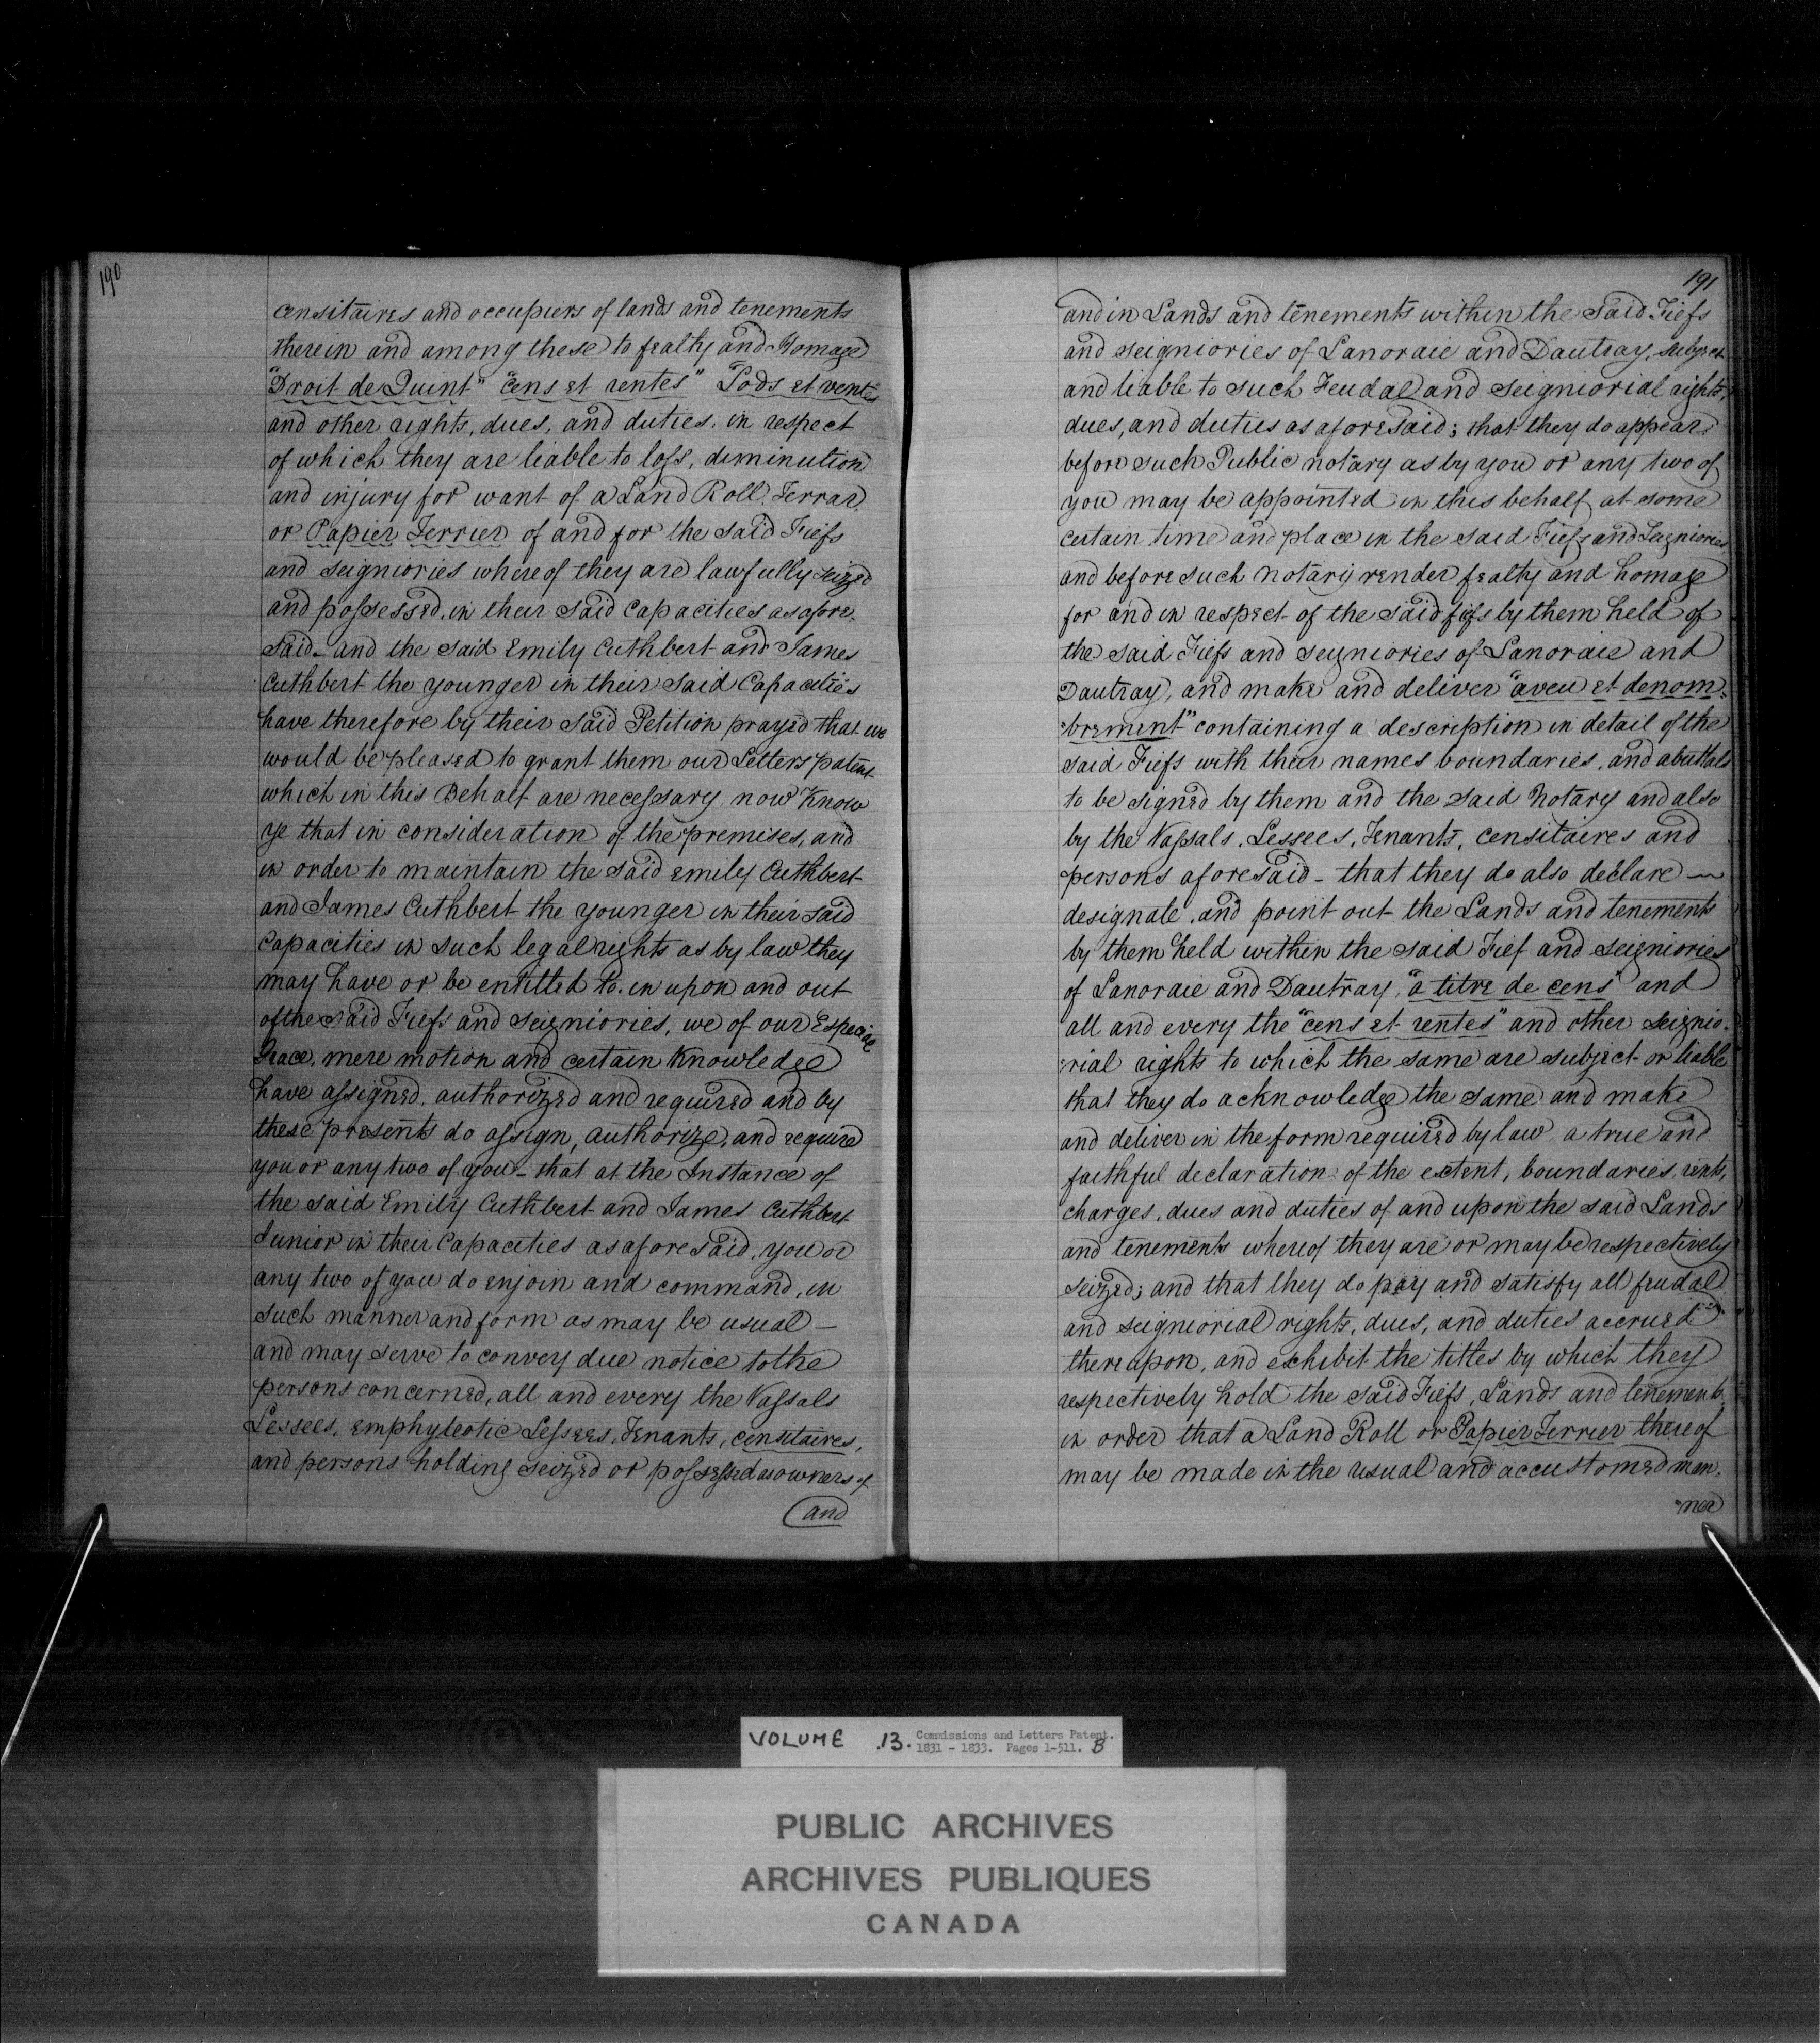 190
censitaires and occupiers of lands and tenements
therein and among these to fealty and Homage
"Droit de Quint" "cens et rentes" "Lods et ventes
and other rights, dues, and duties. in respect
of which they are liable to loss, diminution
and injury for want of a Land Roll Terrar
or Papier Terrier of and for the said Fiefs
and seigniories whereof they are lawfully seized
and possessed. in their said Capacities as afore.
said - and the said Emily Cuthbert and James
Cuthbert the younger in their said Capacities
have therefore by their said Petition prayed that we
would be pleased to grant them our Letters patent
which in this Behalf are necessary now Know
ye that in consideration of the premises, and
in order to maintain the said Emily Cuthbert
and James Cuthbert the younger in their said
Capacities in such legal rights as by law they
may have or be entitled to. in upon and out
of the said Fiefs and seigniories, we of our Especial
Grace, mere motion and certain Knowledge
have assigned. authorized and required and by
these presents do assign, authorize, and require
you or any two of you - that at the Instance of
the said Emily Cuthbert and James Cuthbert
Junior in their Capacities as aforesaid, you or
any two of you do enjoin and command, in
such manner and form as may be usual -
and may serve to convey due notice to the
persons concerned, all and every the Vassals
Lessees, emphyteotic Lessees, Tenants, censitaires,
and persons holding seized or possessed as owners of
and
191
and in Lands and tenements within the said Fiefs
and seigniories of Lanoraie and Dautray, subject
and liable to such Feudal and seigniorial rights,
dues, and duties as aforesaid; that they do appear
before such Public notary as by you or any two of
you may be appointed in this behalf at some
certain time and place in the said Fiefs and Seigniories
and before such notary render fealty and homage
for and in respect of the said fiefs by them held of
the said Fiefs and seigniories of Lanoraie and
Dautray, and make and deliver "aveu et denom-
brement" containing a description in detail of the
said Fiefs with their names boundaries, and abuttals
to be signed by them and the said Notary and also
by the Vassals, Lessees, Tenants, censitaires and
persons aforesaid - that they do also declare
designate, and point out the Lands and tenements
by them held within the said Fief and seigniories
of Lanoraie and Dautray, "a titre de cens" and
all and every the "cens et rentes" and other seignio-
rial rights to which the same are subject or liable
that they do acknowledge the same and make
and deliver in the form required by law a true and
faithful declaration of the extent, boundaries, rents,
charges, dues and duties of and upon the said Lands
and tenements whereof they are or may be respectively
seized; and that they do pay and satisfy all feudal
and seigniorial rights, dues, and duties accrued
thereupon, and exhibit the titles by which they
respectively hold the said Fiefs, Lands and tenements,
in order that a Land Roll or Papier Terrier thereof
may be made in the usual and accustomed man.
ner
VOLUME 13. Commissions and Letters Patent.
1831 - 1833. Pages 1-511. B
PUBLIC ARCHIVES
ARCHIVES PUBLIQUES
CANADA